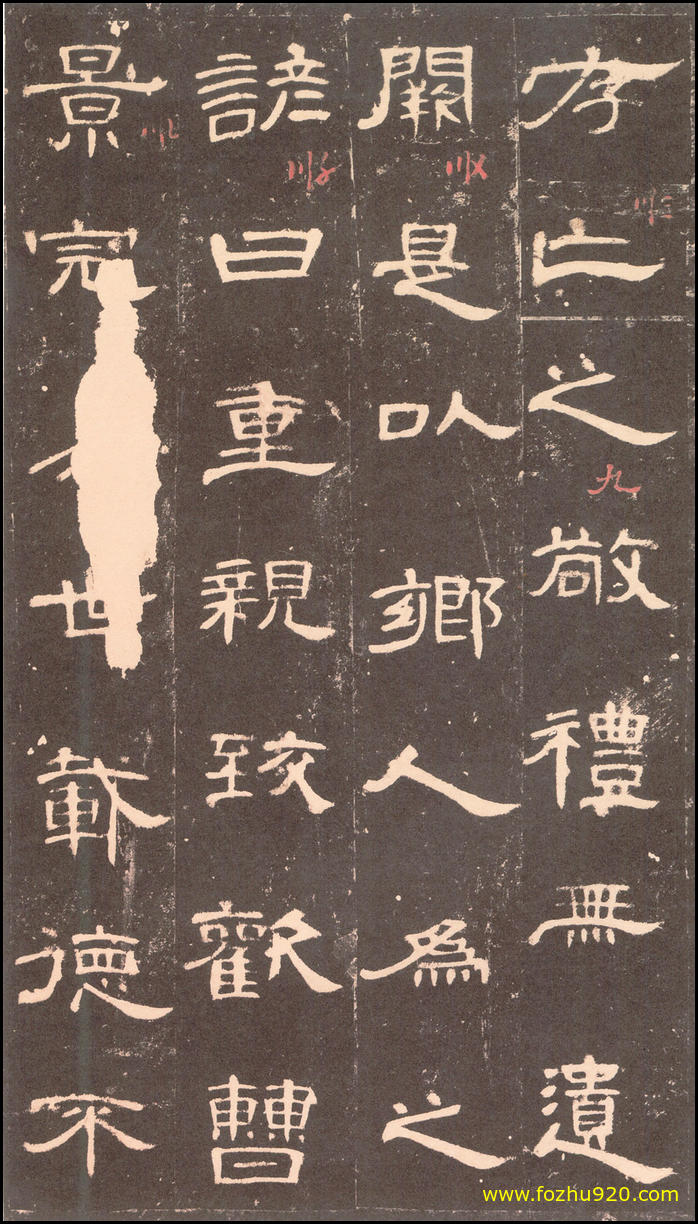 存亡之敬禮無遺
闕是以鄉人為之
諺曰重親致歡曹
景完世載德不
九
www.fozhu920.com